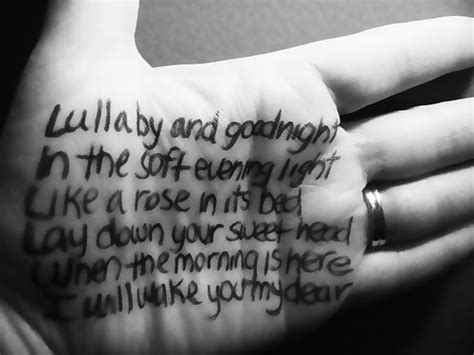 Lullaby and goodnight
In the soft evening light
Like a rose in its bed
Lay down your sweet head
When the morning is here
I will wake you my dear